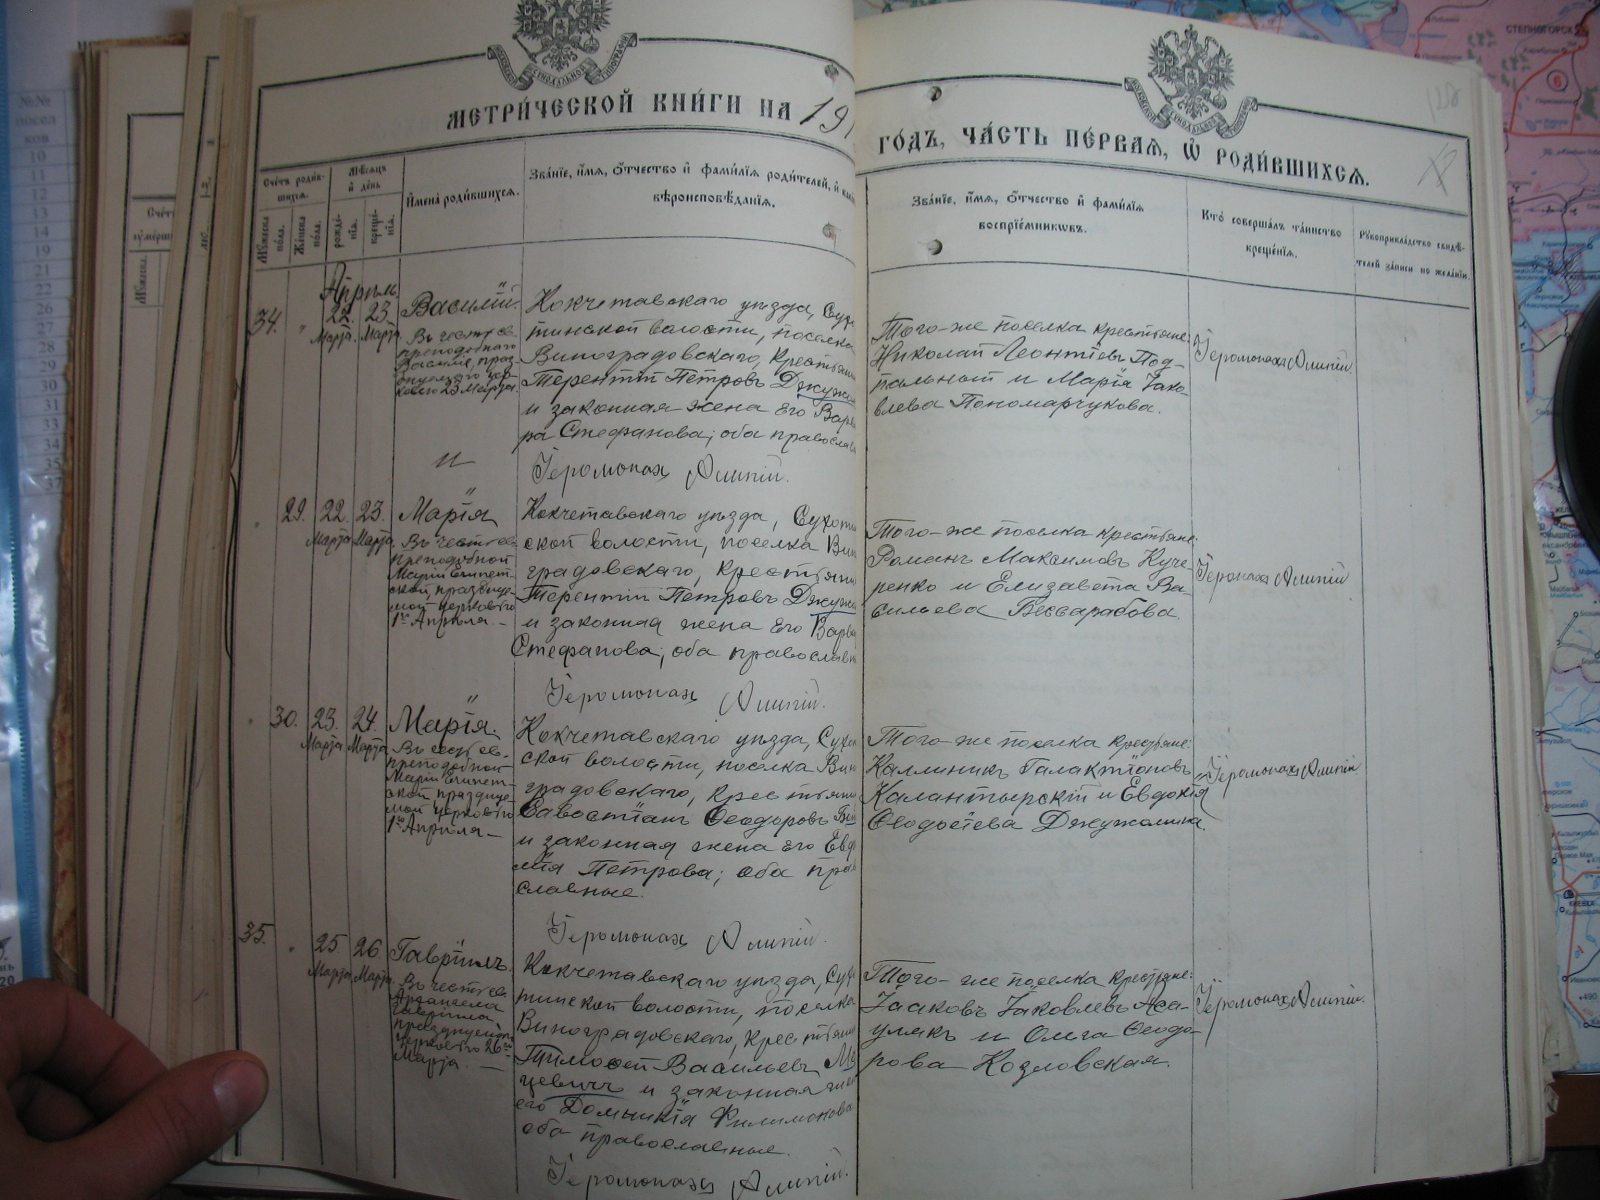 МЕТРИ́ЧЕСКОЙ КНИ́ГИ НА 191
ГО́ДЪ, ЧА́СТЬ ПЕ́РВАЯ, Ѡ РОДИ́ВШИХСЯ.
Сче́тъ роди́в-
шихся.
Му́жеска по́ла.
Же́нска по́ла.
Мѣ́сяцъ
и де́нь
рожде́-
нія.
креще́-
нія.
Имена́ роди́вшихся.
Зва́ніе, и́мя, о́тчество и фами́лія роди́телей, и
вѣроисповѣ́данія.
Зва́ніе, и́мя, о́тчество и фами́лія
воспріе́мниковъ.
Кто́ соверша́лъ та́инство
креще́нія.
Рукоприкла́дство свидѣ́-
телей за́писи по жела́нію.
Апрѣль
34.
22.
Марта
23.
Марта
Василій.
Въ честь св.
преподобнаго
Василія, праз
церк
ковію 23 Марта.
Кокчетавскаго уѣзда, Сухо
тинской волости, поселка
Виноградовскаго, Крестьяни
Терентій Петровъ Джужа
и законная жена его Варва
ра Стефанова; оба православ
Іеромонахъ Алипій.
Того-же поселка крестьяне:
Николай Леонтіевъ Под-
пальной и Марія Іако-
влева Пономарчукова.
Іеромонахъ Алипій.
29.
22.
Марта
23.
Марта
Марія
Въ честь св.
Преподобной
Маріи Египет-
ской, празднуе-
мой церковію
1го Апрѣля. –
Кокчетавскаго уѣзда, Сухотин
ской волости, поселка Вин
градовскаго, Крестьяни
Терентій Петровъ Джужа
и законная жена его Варва
Стефанова; оба православн
Іеромонахъ Алипій.
Того-же поселка крестьяне
Романъ Максимовъ Куче-
ренко и Елизавета Ва-
сильева Бессарабова.
Іеромонахъ Алипій
30.
23.
Марта
24.
Марта
Марія.
Въ честь св.
преподобной
Маріи Египет-
ской празднуе-
мой церковію
1го Апрѣля –
Кокчетавскаго уѣзда, Сухо
ской волости, поселка Вин
градовскаго, крестьяни
Савостіанъ Ѳеодоровъ
и законная жена его Евд
Петрова; оба прав
славные.
Іеромонахъ Алипій.
Того-же поселка крестьяне:
Каллиникъ Галактіоновъ
Калантырскій и Евдокія
Ѳеодосіева Джужолина.
Іеромонахъ Алипій
35.
25
Марта
26
Марта.
Гавріилъ.
Въ честь св.
Архангела
Гавріила
празднуемаго
церковію 26го
Марта. –
Кокчетавскаго уѣзда, Сухо
тинской волости, поселка
Виноградовскаго, крестьяни
Тимоѳей Васильевъ Ма
цевичъ и законная жен
его Домникія Филимонова
оба православные.
Іеромонахъ Алипій.
Того-же поселка крестьяне:
Іаковъ Іаковлевъ Аса-
улякъ и Ольга Ѳеодо-
рова Козловская.
Іеромонахъ Алипій.
СТЕПНОГОРСК